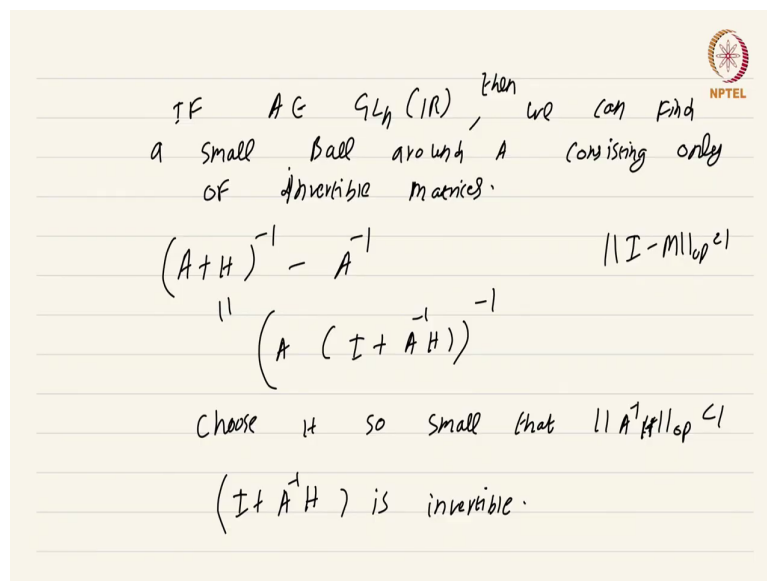 NPTEL
IF A ∈ GLn(IR), then we can find
a small Ball around A consisting only
OF invertible matrices.
(A+H)^-1 - A^-1 ||I-M||op<1
|| (A (I + A^-1 H))^-1
Choose H so small that ||A^-1 H||op <1
(I + A^-1 H) is invertible.